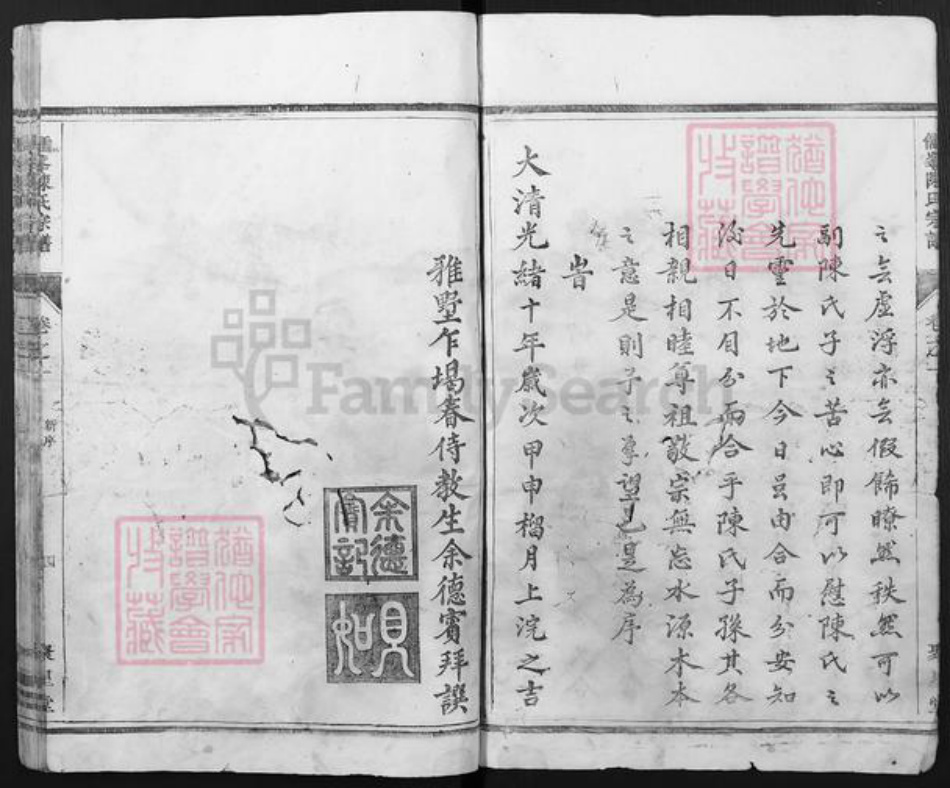 之無虛浮亦無假餙瞭然秩然可以
副陳氏子之苦心即可以慰陳氏之
先靈於地下今日虽由合而分安知
後日不因分而合乎陳氏子孫其各
相親相睦尊祖敬宗無忘水源木本
之意是則予之厚望也是為序
旹
大清光緒十年歲次甲申榴月上浣之吉
雅墅乍場春侍教生余德賓拜譔
余德賓記
陳氏宗譜
卷之一
新序
四
聚星堂
譜學會
收藏
FamilySearch